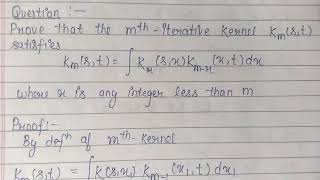 Question :-
Prove that the mth-iterative kernel Km(s,t)
satisfies
Km(s,t) = ∫ Kr(s,x) Km-r(x,t) dx
where r is any integer less than m
Proof:-
By defn of mth-kernel
Km(s,t) = ∫ K(s,x1) Km-1(x1,t) dx1